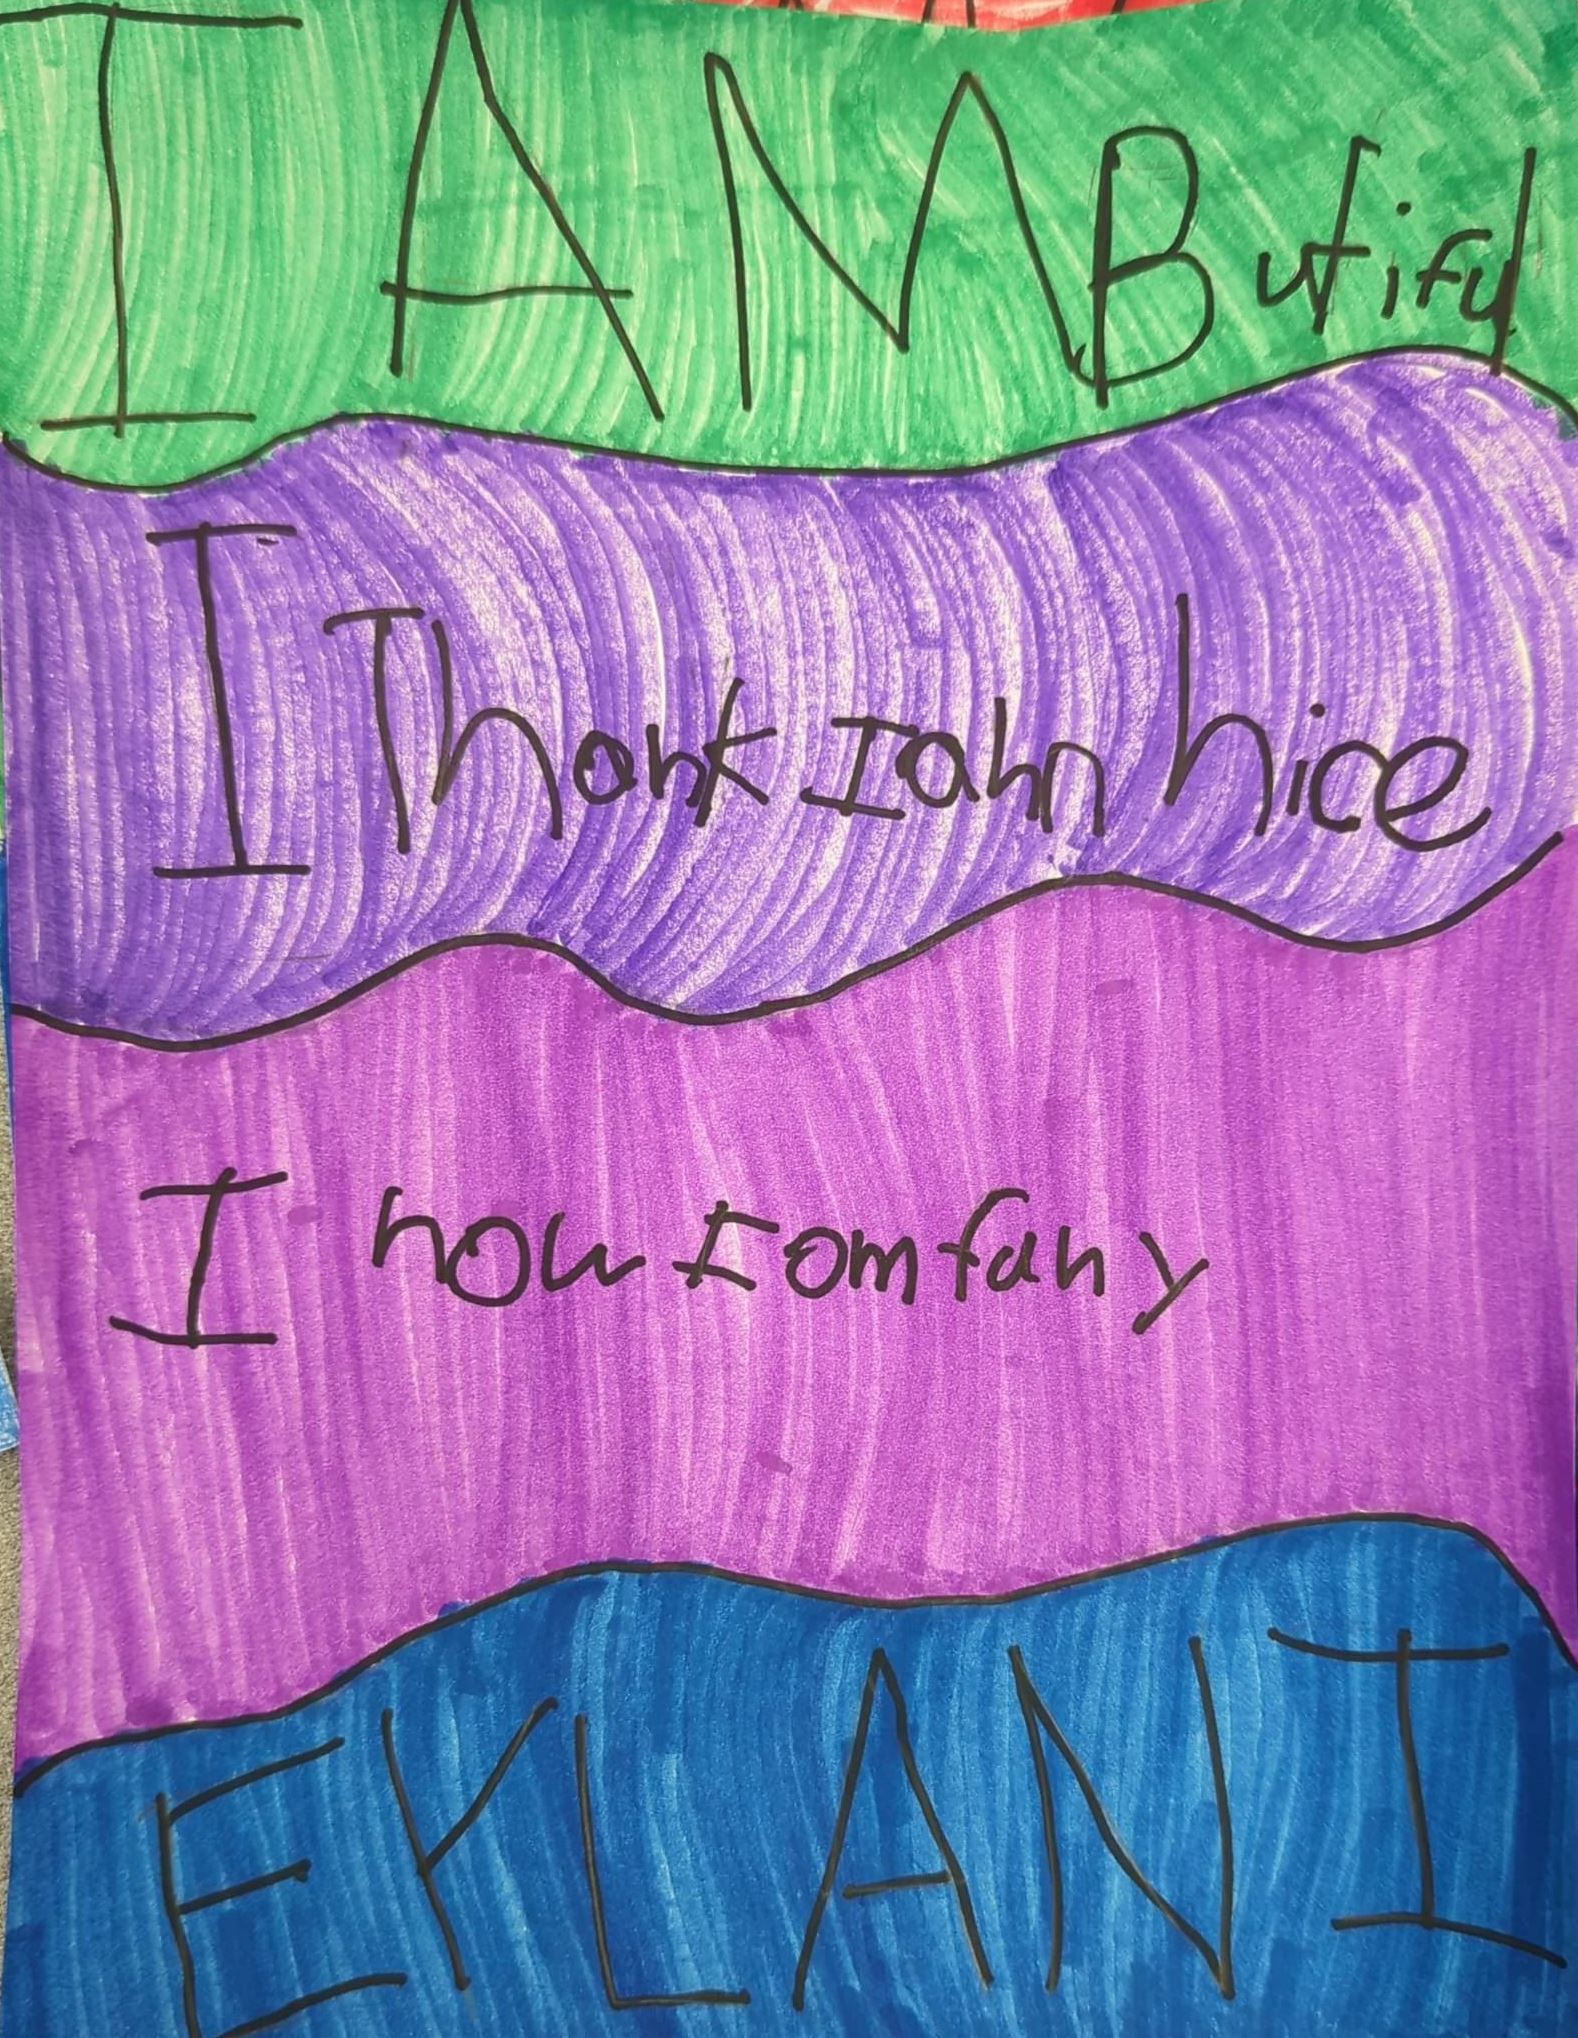 I AM Butiful
I Thonk Iahn nice
I now Iom fany
EKLANI